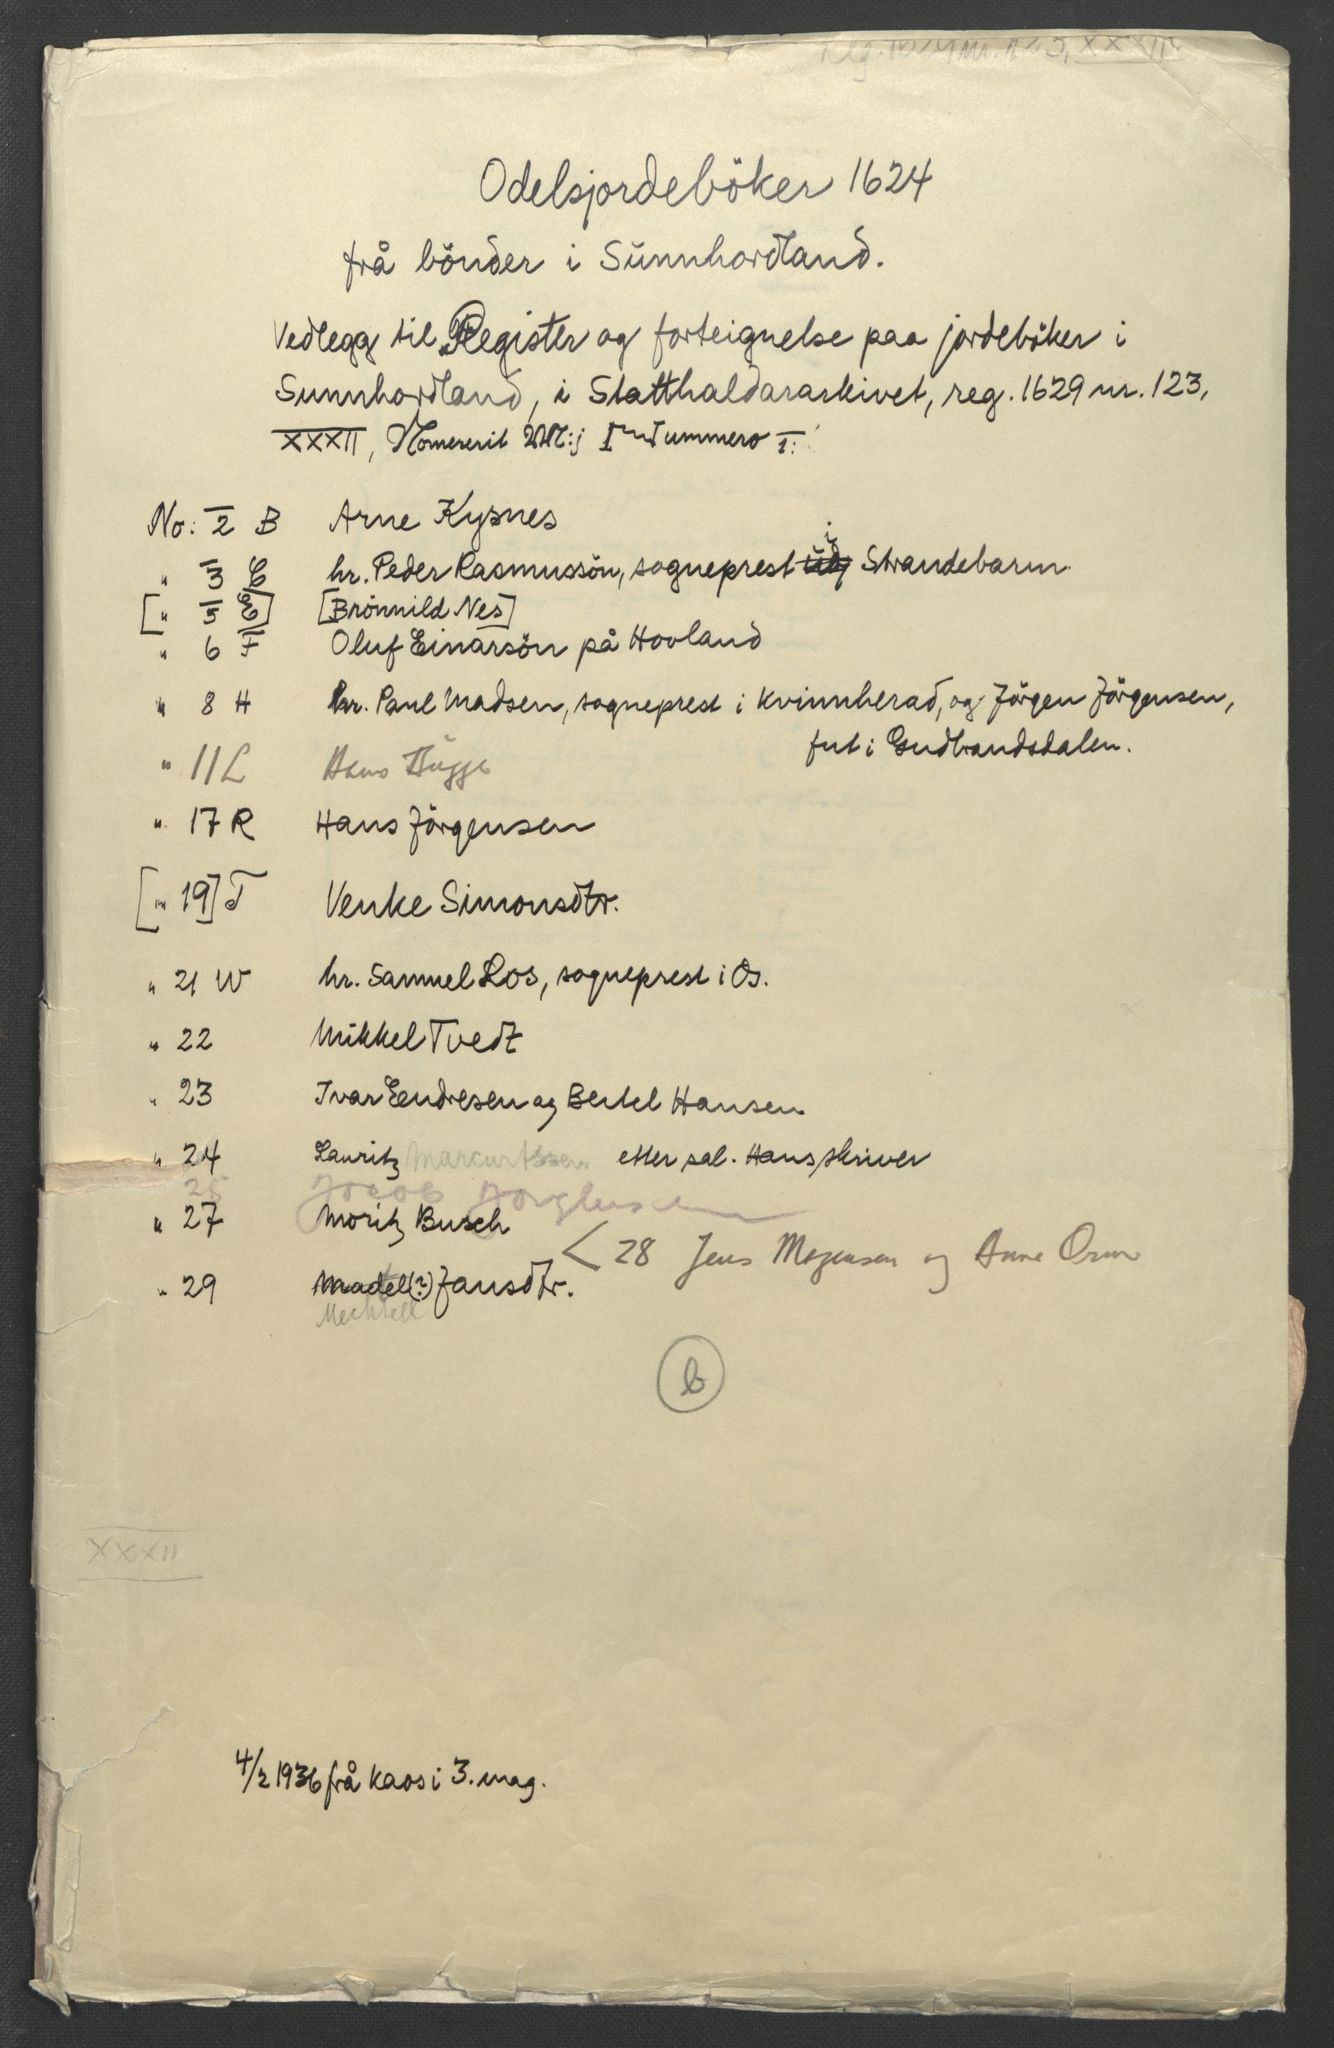 XXXII
Odelsjordeböker 1624
frå bönder i Sunnhordland.
Vedlegg til "Register og forteignelse paa jordebøker i
Sunnhordland, i Statthaldararkivet, reg. 1629 nr. 123,
XXXII, Nummero I:
No: 2 B Arne Kysnes
" 3 C hr. Peder Rasmussön, sogneprest i Strandebarm.
[" 5 E] [Brönnild Nes]
" 6 F Oluf Einarsön på Hovland
" 8 H hr. Paul Madsen, sogneprest i Kvinnherad, og Jörgen Jörgensen,
fut i Gudbrandsdalen.
" 11 L Hans
" 17 R Hans Jörgensen
[" 19] T Venke Simonsdtr.
" 21 W hr. Samuel Ros, sogneprest i Os.
" 22 Mikkel Tvedt
" 23 Ivar Endresen og Bertel Hansen
" 24 Lauritz Marcurssen etter sal. Hans skriver
25 Jacob Jörgensen
" 27 Moritz Busch
< 28 Jens Mogensen og Anne Orm
" 29 Madel(?) Jansdtr.
Mechtell
b
XXXII
4/2 1936 frå kaos i 3. mag.